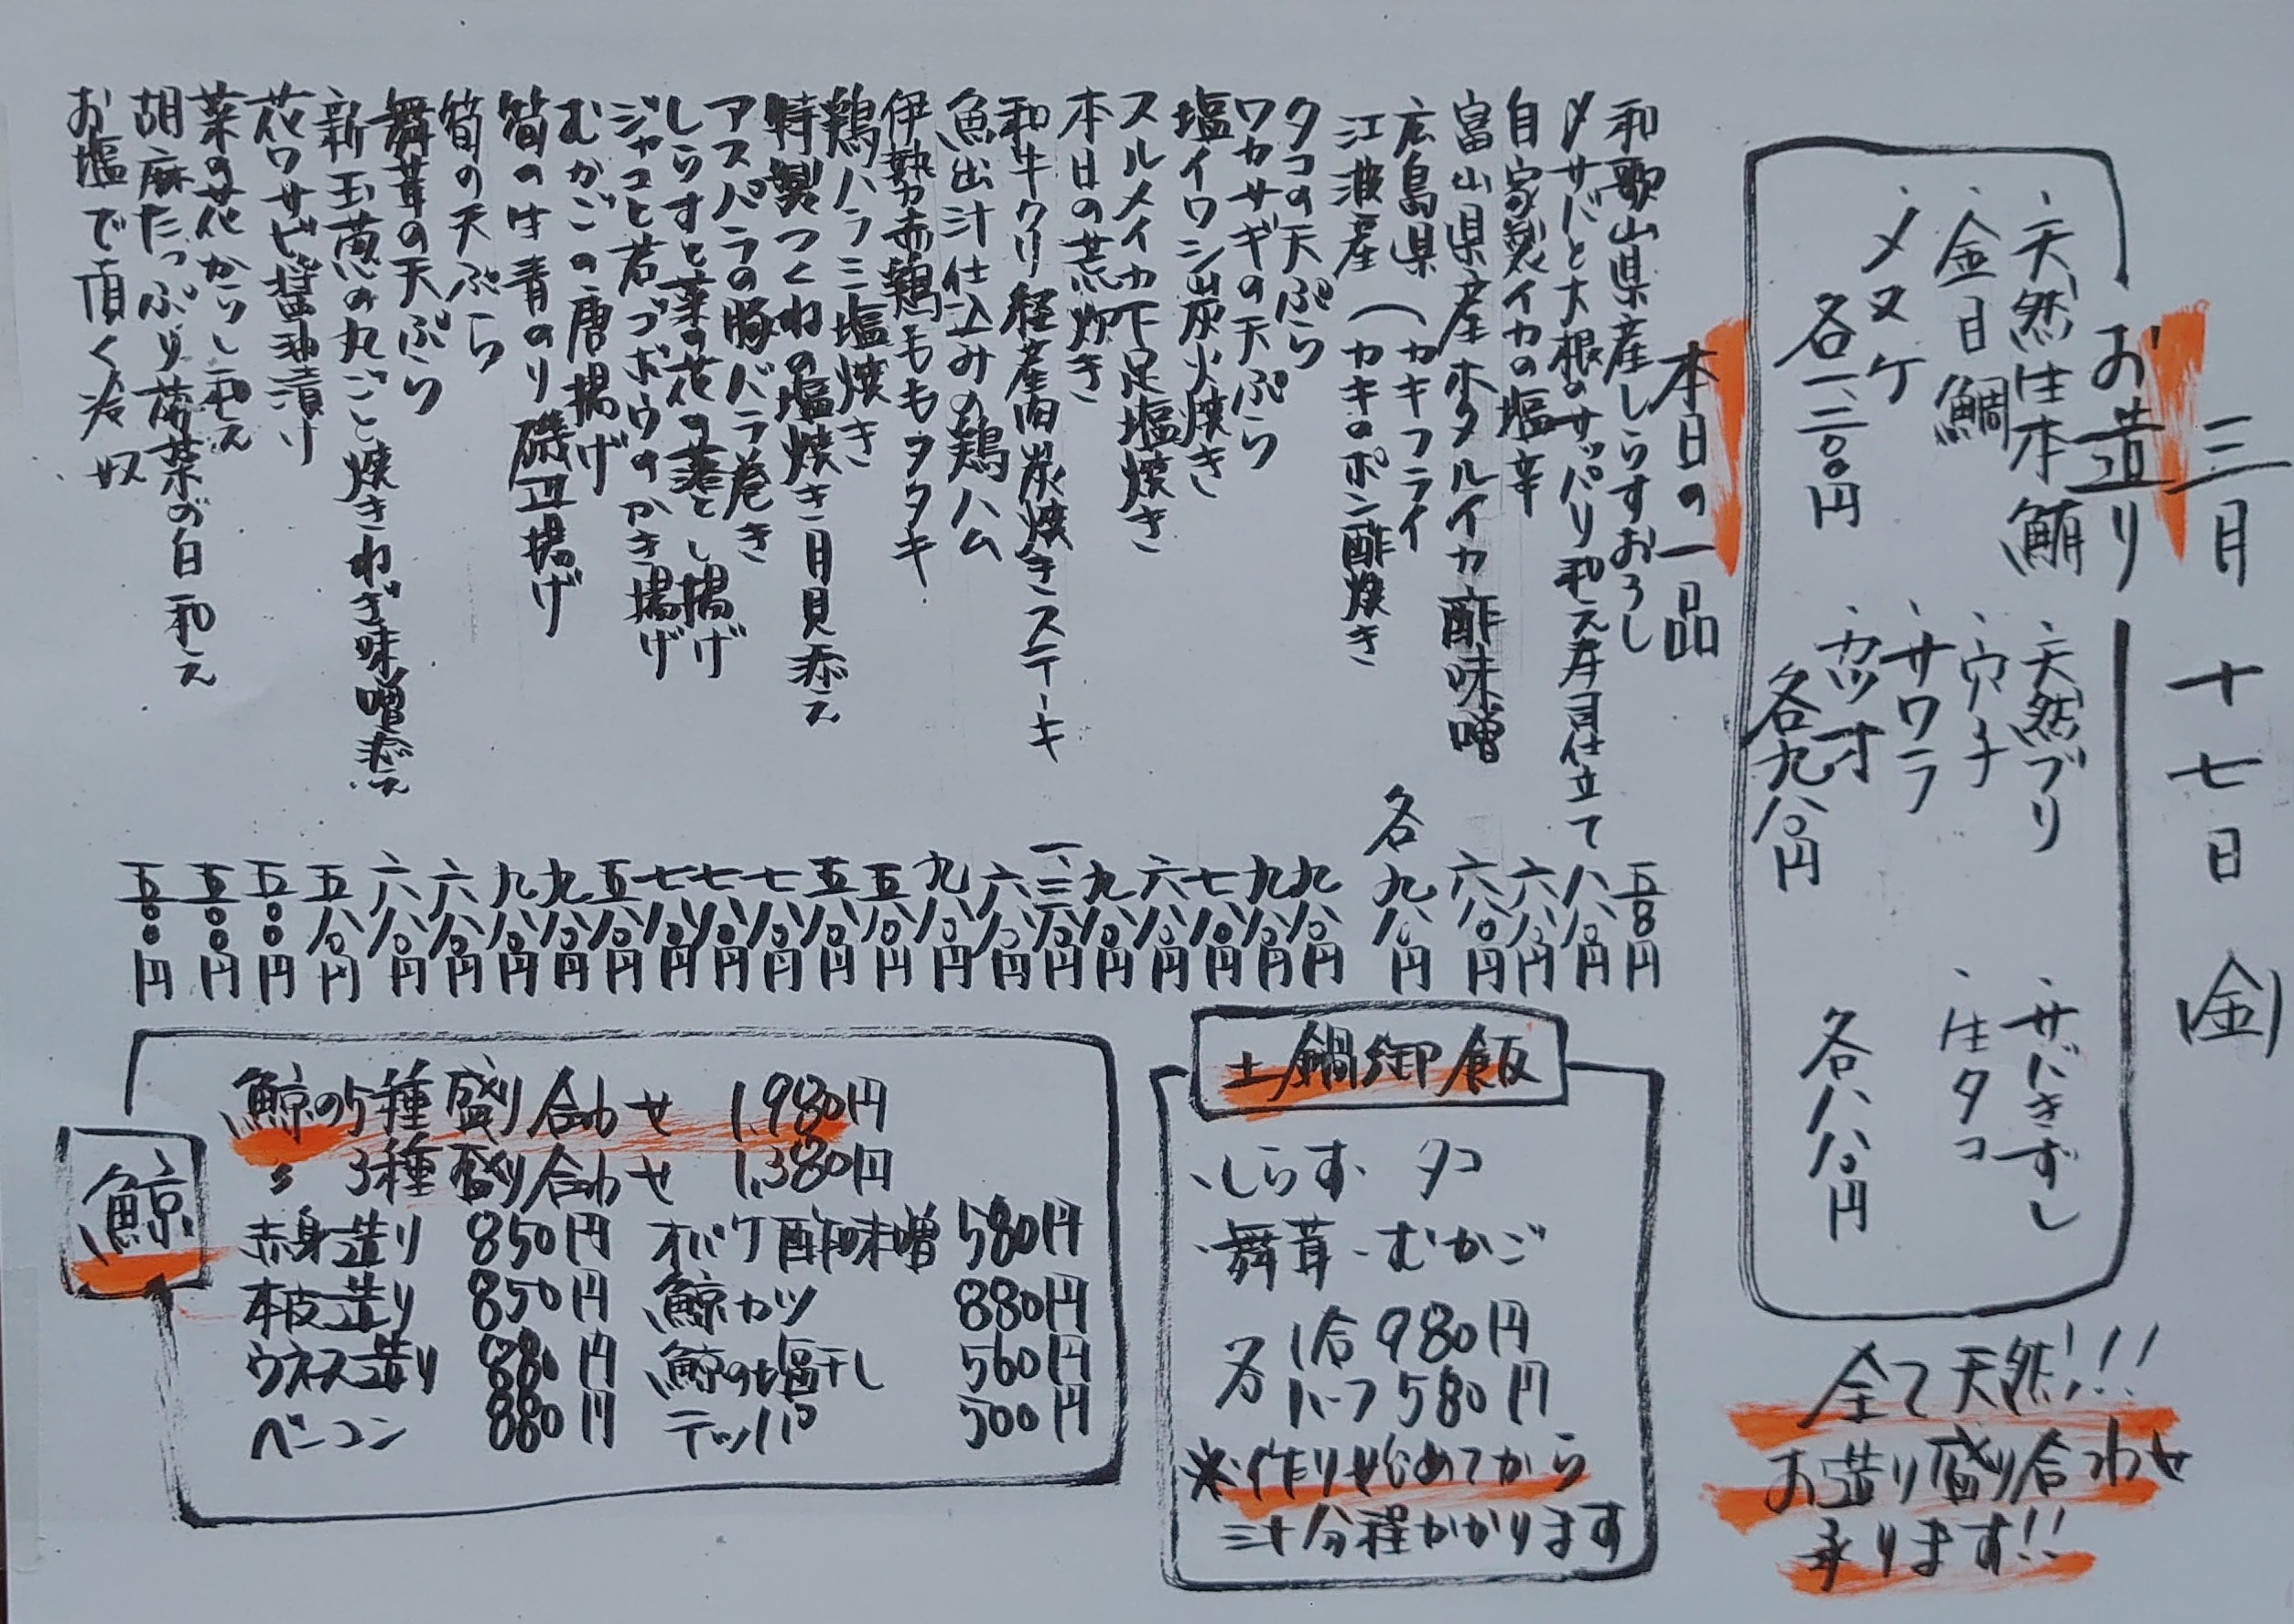 三月十七日(金)
お造り
・天然生本鮪
・金目鯛
・メヌケ
各一、二〇〇円
・天然ブリ
・穴子
・サワラ
・カツオ
各九八〇円
・サバきずし
・生タコ
各八八〇円
全て天然!!
お造り盛り合わせ
承ります!!
本日の一品
和歌山県産しらすおろし 五八〇円
〆サバと大根のサッパリ和え寿司仕立て 八八〇円
自家製イカの塩辛 六八〇円
富山県産ホタルイカ酢味噌 六八〇円
広島県 江波産 (カキフライ カキのポン酢焼き 各九八〇円
タコの天ぷら 九八〇円
ワカサギの天ぷら 九八〇円
塩イワシ炭火焼き 七八〇円
スルメイカ下足塩焼き 六八〇円
本日の荒炊き 九八〇円
和牛クリ 経産肉炭焼きステーキ 一、三八〇円
魚出汁仕込みの鶏ハム 六八〇円
伊勢赤鶏ももタタキ 九八〇円
鶏ハラミ塩焼き 五八〇円
特製つくねの塩焼き月見添え 五八〇円
アスパラの豚バラ巻き 七八〇円
しらすと菜の花の落とし揚げ 七八〇円
ジャコと若ゴボウのかき揚げ 七八〇円
むかごの唐揚げ 五八〇円
筍の生青のり磯辺揚げ 九八〇円
筍の天ぷら 九八〇円
舞茸の天ぷら 六八〇円
新玉葱の丸ごと焼きねぎ味噌添え 六八〇円
花ワサビ醤油漬け 五八〇円
菜の花からし和え 五〇〇円
胡麻たっぷり菠菜の白和え 五〇〇円
お塩で頂く冷奴 五〇〇円
土鍋御飯
・しらす・タコ
・舞茸・むかご
各 1合 980円
ハーフ 580円
※作り始めてから
三十分程かかります
鯨
鯨の5種盛り合わせ 1,980円
〃 3種盛り合わせ 1,380円
赤身造り 850円 オバケ酢味噌 580円
本皮造り 850円 鯨カツ 880円
ウネス造り 880円 鯨の塩干し 560円
ベーコン 880円 テッパ 500円